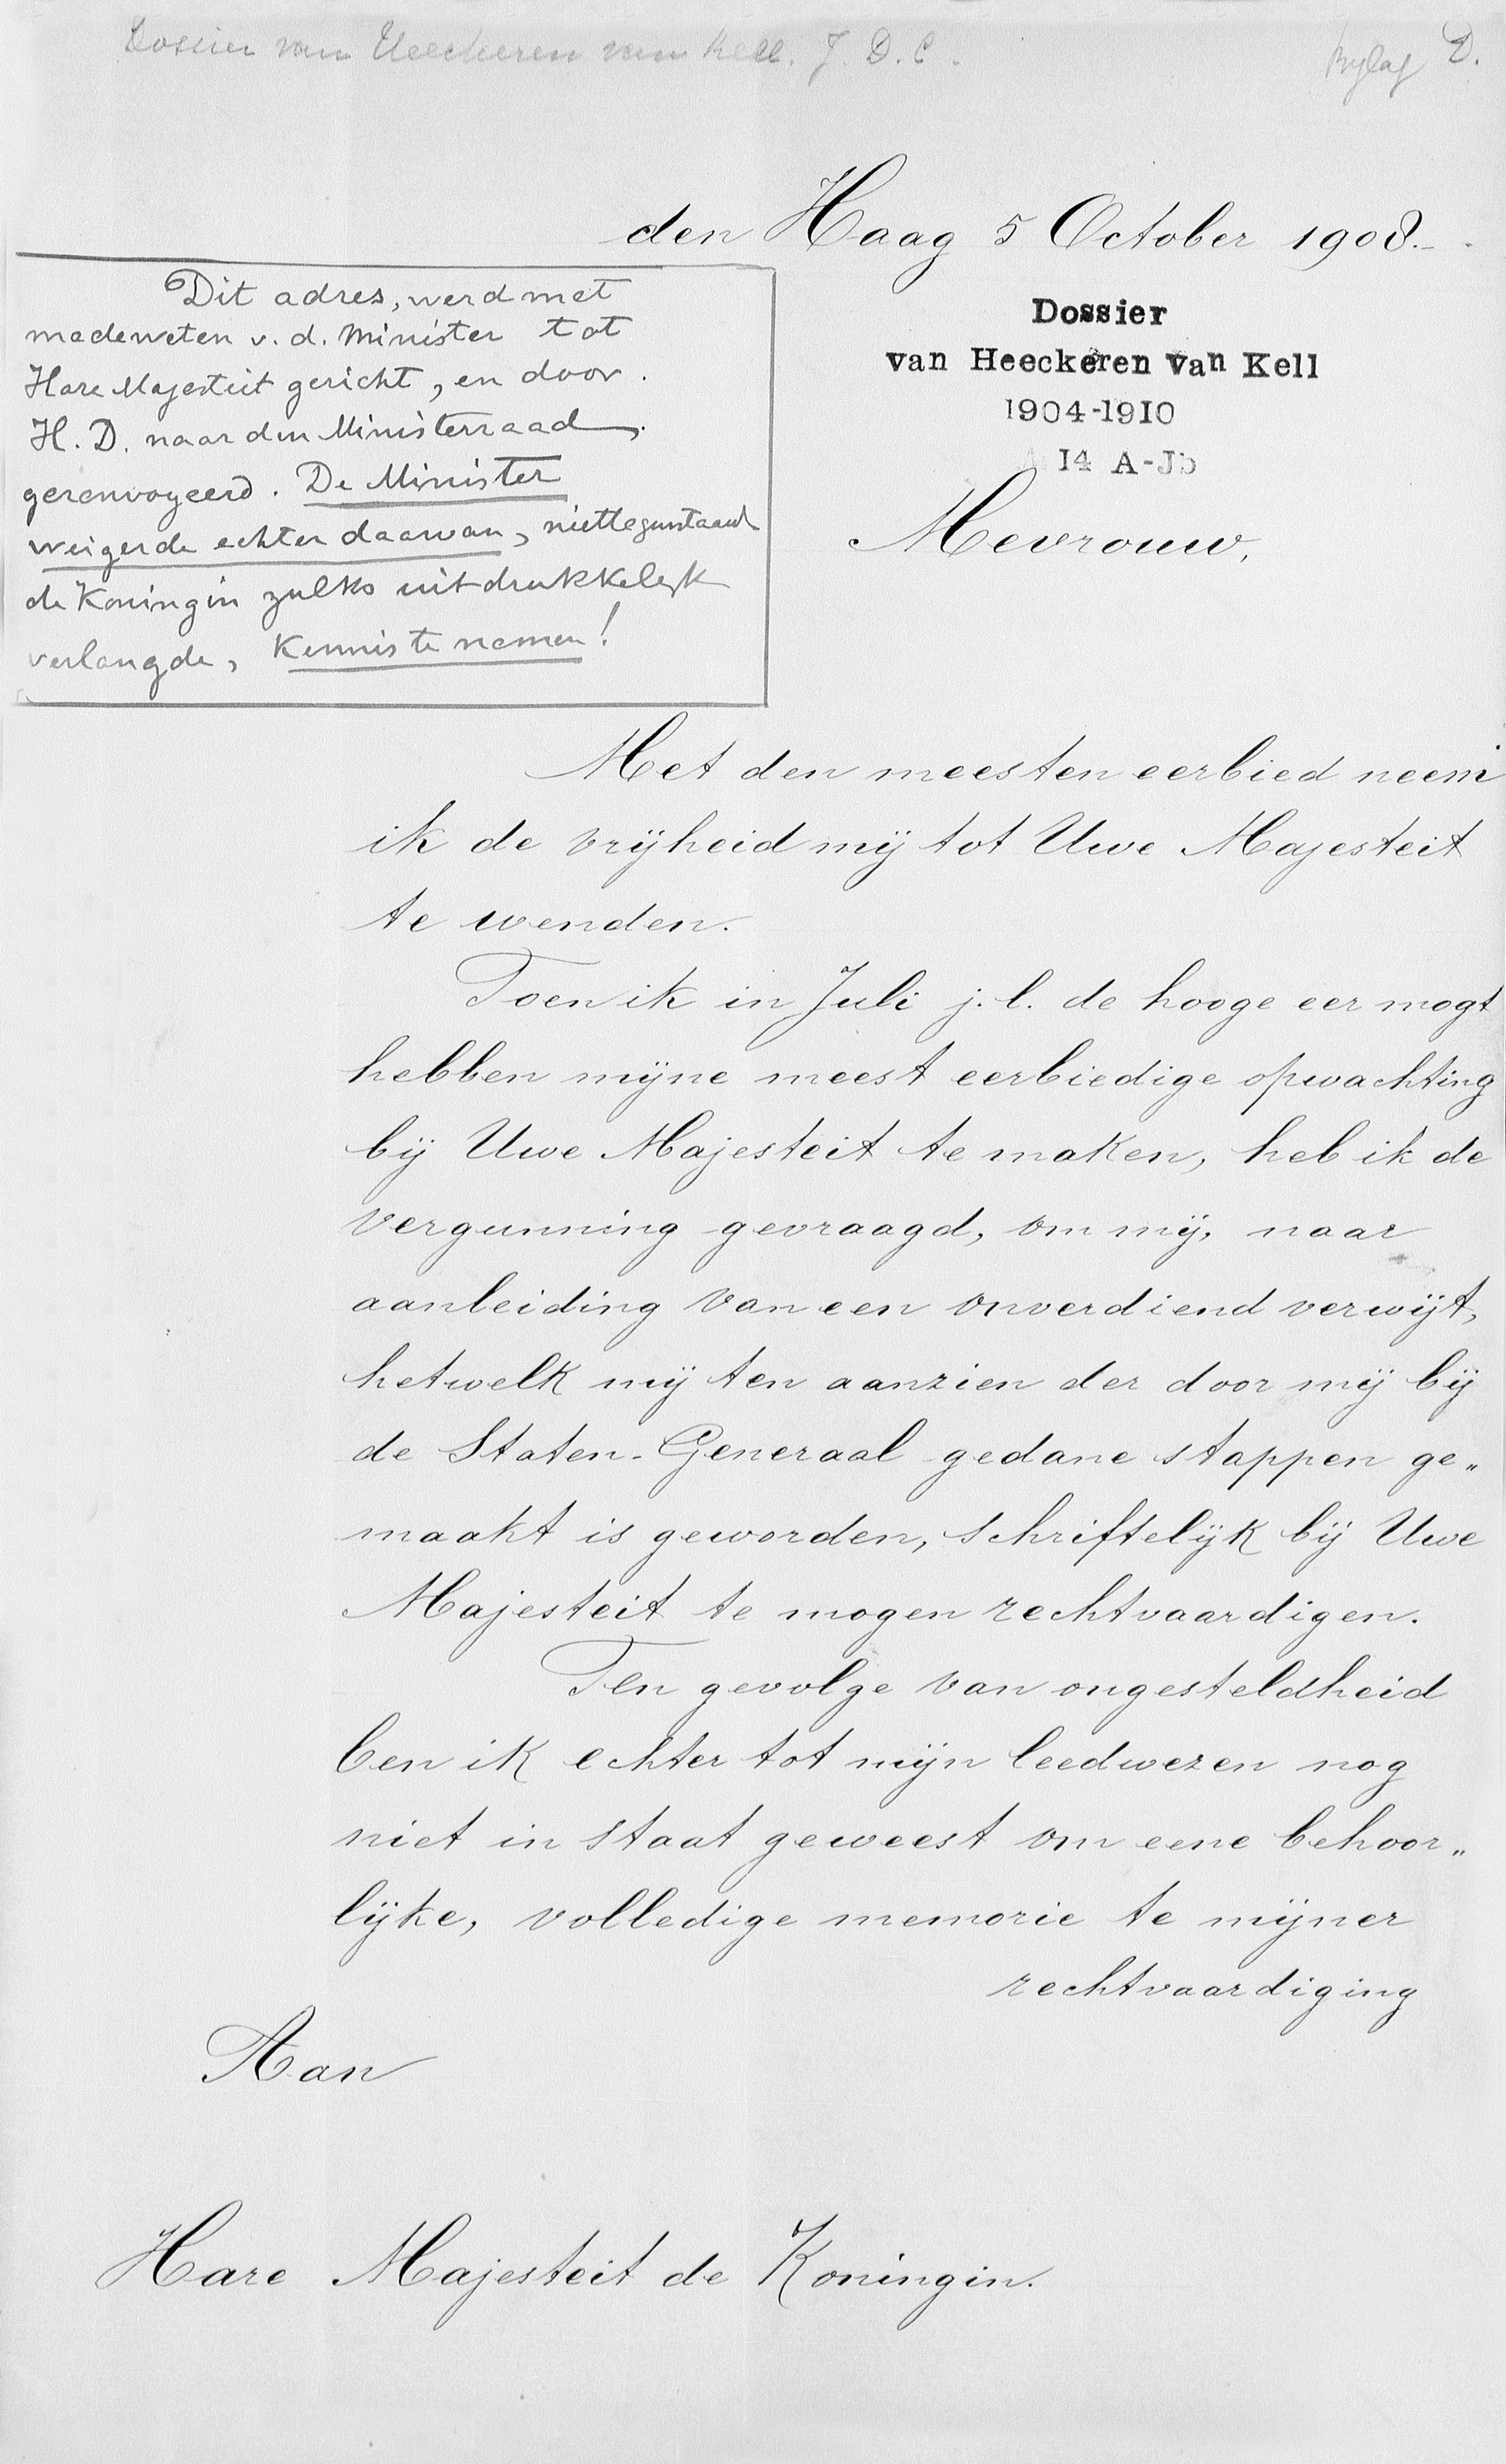 Dossier van Heeckeren van Kell. J. D. C.
Bylag D.
den Haag 5 October 1908.-
Dit adres, werd met
medeweten v. d. Minister tot
Hare Majesteit gericht, en door
H. D. naar den Ministerraad
gerenvoyeerd. De Minister
weigerde echter daarvan, niettegenstaande
de Koningin zulks uitdrukkelyk
verlangde, Kennis te nemen!
Dossier
van Heeckeren van Kell
1904-1910
14 A-Jb
Mevrouw,
Met den meesten eerbied neem
ik de vrijheid mij tot Uwe Majesteit
te wenden.
Toen ik in Juli j.l. de hooge eer mogt
hebben mijne meest eerbiedige opwachting
bij Uwe Majesteit te maken, heb ik de
vergunning gevraagd, om mij, naar
aanleiding van een onverdiend verwijt,
hetwelk mij ten aanzien der door mij bij
de Staten-Generaal gedane stappen ge„
maakt is geworden, schriftelijk bij Uwe
Majesteit te mogen rechtvaardigen.
Ten gevolge van ongesteldheid
ben ik echter tot mijn leedwezen nog
niet in staat geweest om eene behoor„
lijke, volledige memorie te mijner
rechtvaardiging
Aan
Hare Majesteit de Koningin.